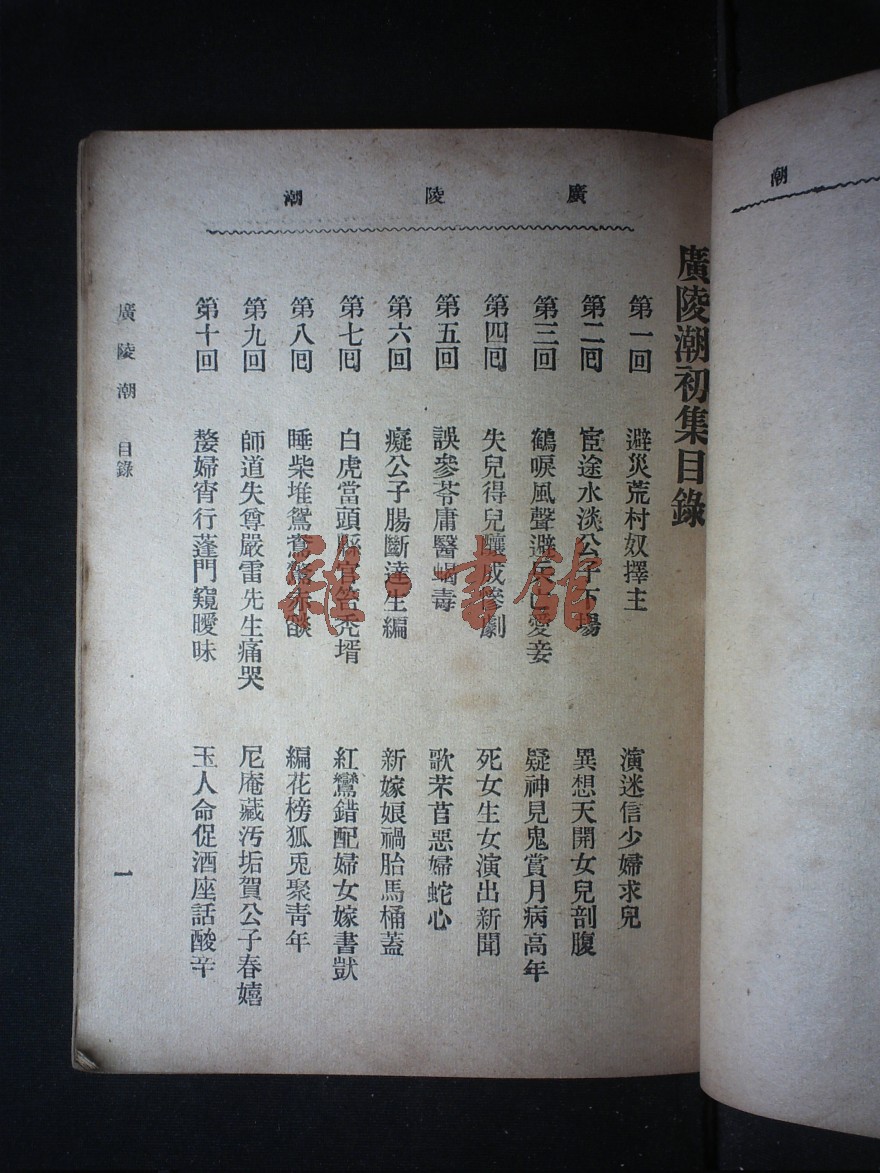 潮
廣陵潮
廣陵潮初集目錄
第一回 避災荒村奴擇主 演迷信少婦求兒
第二囘 宦途水淡公子下場 異想天開女兒剖腹
第三回 鶴唳風聲避兵亡愛妾 疑神見鬼賞月病高年
第四囘 失兒得兒釀成慘劇 死女生女演出新聞
第五回 誤參苓庸醫蝎毒 歌芣苢惡婦蛇心
第六回 癡公子腸斷達生編 新嫁娘禍胎馬桶蓋
第七囘 白虎當頭縣官笞禿壻 紅鸞錯配婦女嫁書獃
第八囘 睡柴堆鴛鴦驚赤燄 編花榜狐兎聚靑年
第九回 師道失尊嚴雷先生痛哭 尼庵藏汚垢賀公子春嬉
第十回 嫠婦宵行蓬門窺曖昧 玉人命促酒座話酸辛
廣陵潮 目錄
一
雜·書館